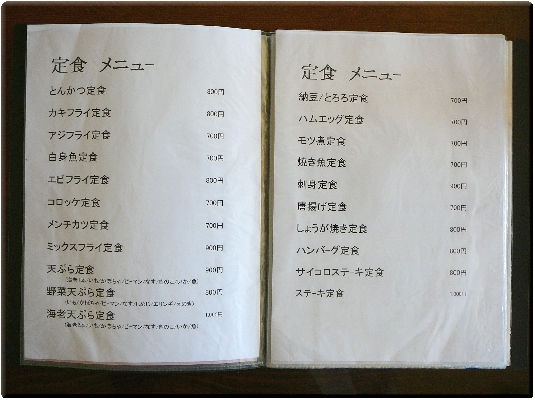 定食 メニュー
とんかつ定食 800円
カキフライ定食 800円
アジフライ定食 700円
白身魚定食 700円
エビフライ定食 800円
コロッケ定食 700円
メンチカツ定食 700円
ミックスフライ定食 900円
天ぷら定食 900円
野菜天ぷら定食 800円
海老天ぷら定食
定食 メニュー
納豆/とろろ定食 700円
ハムエッグ定食 700円
モツ煮定食 700円
焼き魚定食 700円
刺身定食 900円
唐揚げ定食 700円
しょうが焼き定食 800円
ハンバーグ定食 800円
サイコロステーキ定食 800円
ステーキ定食